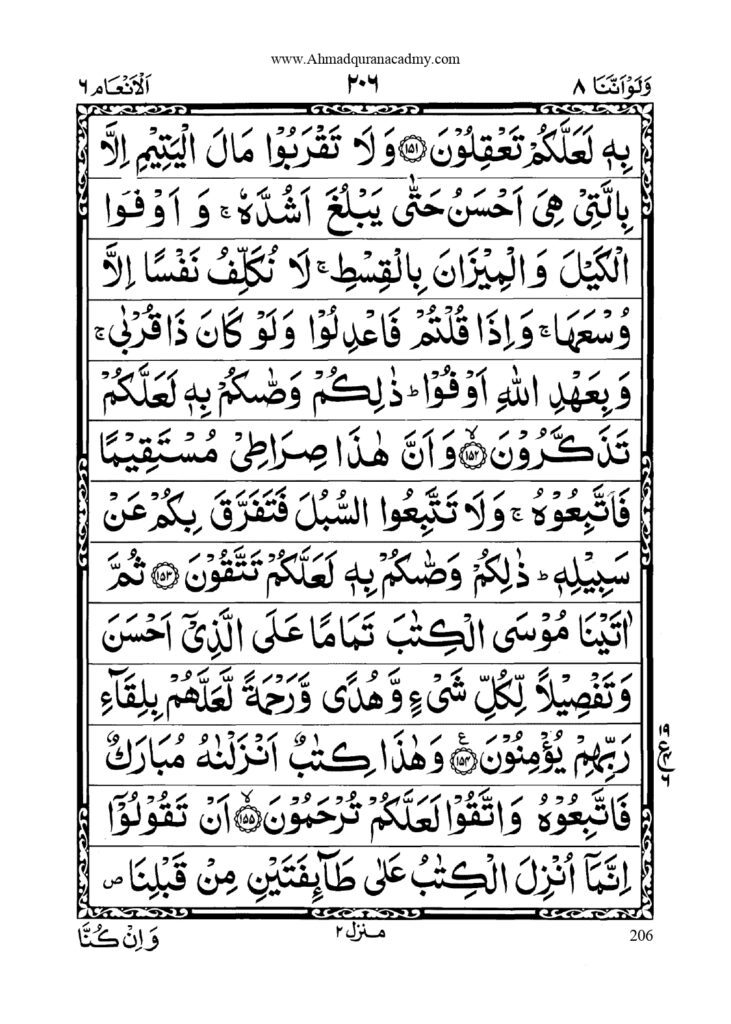 www.Ahmadquranacadmy.com
وَلَوْاَنَّنَا ٨
٢٠٦
اَلْاَنْعَام ٦
بِهٖ لَعَلَّكُمْ تَعْقِلُوْنَ ١٥١ وَلَا تَقْرَبُوْا مَالَ الْيَتِيْمِ اِلَّا
بِالَّتِيْ هِيَ اَحْسَنُ حَتّٰى يَبْلُغَ اَشُدَّهٗ ۚ وَ اَوْفُوا
الْكَيْلَ وَالْمِيْزَانَ بِالْقِسْطِ ۚ لَا نُكَلِّفُ نَفْسًا اِلَّا
وُسْعَهَا ۚ وَاِذَا قُلْتُمْ فَاعْدِلُوْا وَلَوْ كَانَ ذَا قُرْبٰى ۚ
وَبِعَهْدِ اللّٰهِ اَوْفُوْا ؕ ذٰلِكُمْ وَصّٰىكُمْ بِهٖ لَعَلَّكُمْ
تَذَكَّرُوْنَ ۙ ١٥٢ وَاَنَّ هٰذَا صِرَاطِيْ مُسْتَقِيْمًا
فَاتَّبِعُوْهُ ۚ وَلَا تَتَّبِعُوا السُّبُلَ فَتَفَرَّقَ بِكُمْ عَنْ
سَبِيْلِهٖ ؕ ذٰلِكُمْ وَصّٰىكُمْ بِهٖ لَعَلَّكُمْ تَتَّقُوْنَ ١٥٣ ثُمَّ
اٰتَيْنَا مُوْسَى الْكِتٰبَ تَمَامًا عَلَى الَّذِيْٓ اَحْسَنَ
وَتَفْصِيْلًا لِّكُلِّ شَيْءٍ وَّهُدًى وَّرَحْمَةً لَّعَلَّهُمْ بِلِقَآءِ
رَبِّهِمْ يُؤْمِنُوْنَ ع ١٥٤ وَهٰذَا كِتٰبٌ اَنْزَلْنٰهُ مُبَارَكٌ
١٩
ع ٤
٦
فَاتَّبِعُوْهُ وَاتَّقُوْا لَعَلَّكُمْ تُرْحَمُوْنَ ۙ ١٥٥ اَنْ تَقُوْلُوْٓا
اِنَّمَآ اُنْزِلَ الْكِتٰبُ عَلٰى طَآئِفَتَيْنِ مِنْ قَبْلِنَا ص
206
منزل ٢
وَاِنْ كُنَّا